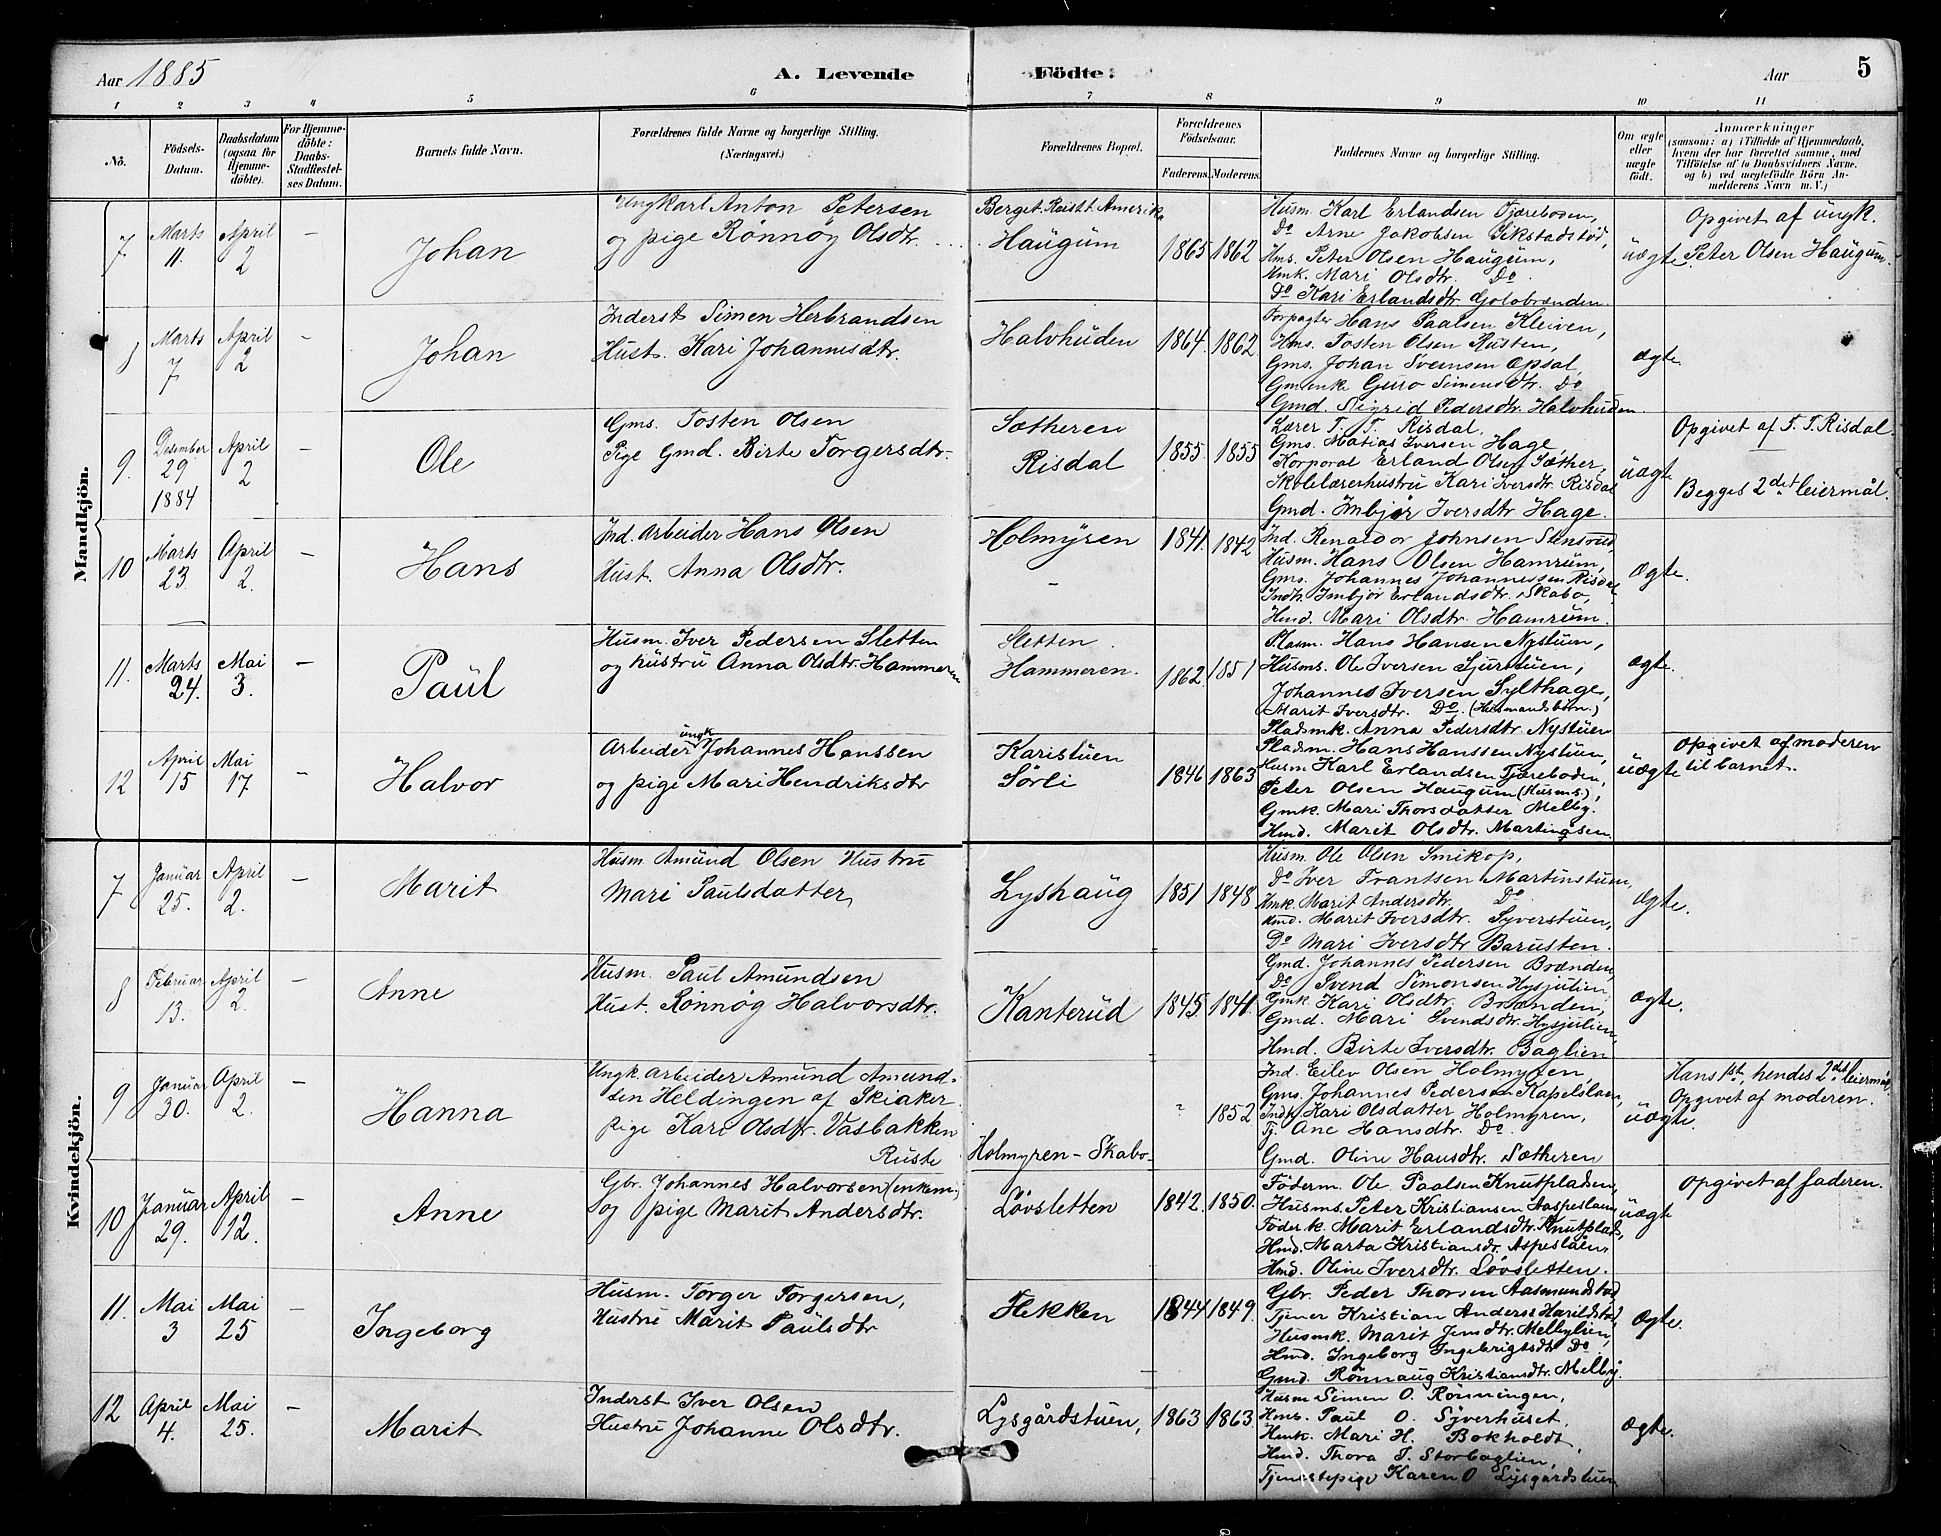 Aar 1885
A. Levende Födte.
Aar
5
1 2 3 4 5 6 7 8 9 10 11
No.
Födsels-Datum.
Daabsdatum (ogsaa for Hjemme-döbte).
For Hjemme-döbte: Daabs-Stadfæstel-ses Datum.
Barnets fulde Navn.
Forældrenes fulde Navne og borgerlige Stilling.
(Næringsvei.)
Forældrenes Bopæl.
Forældrenes Födselsaar.
Faderens. Moderens.
Faddernes Navne og borgerlige Stilling.
Om ægte eller uægte födt.
Anmærkninger
(saasom: a) i Tilfælde af Hjemmedaab, hvem der har forrettet samme, med Tilföielse af to Daabsvidners Navne, og b) ved uægtefödte Börn An-melderens Navn m. V.)
Mandkjön.
7
Marts 11.
April 2
–
Johan
Ungkarl Anton Petersen
og pige Rønnøg Olsdtr.
Berget. Reist t. Amerika
Haugum
1865 1862
Husm. Karl Erlandsen Tjæreboden,
Do Arne Jakobsen Vikstadstød,
Hms. Peter Olsen Haugum,
Hmk. Mari Olsdtr. Do.
Do Kari Erlandsdtr Golobrænden.
uægte.
Opgivet af ungk.
Peter Olsen Haugum.
8
Marts 7
April 2
–
Johan
Inderst Simen Herbrandsen
Hust. Kari Johannesdtr.
Halvhuden
1864. 1862.
Forpagter Hans Paalsen Kleiven,
Hms. Tosten Olsen Rusten,
Gms. Johan Svensen Opsal,
Gmenke Guro Simensdtr. Do
Gmd. Sigrid Pedersdtr. Halvhuden.
ægte.
9.
Desember 29 1884
April 2
–
Ole
Gms. Tosten Olsen
Pige Gmd. Birte Torgersdtr.
Sætheren
Risdal
1855. 1855
Lærer T. T. Risdal,
Gms. Matias Iversen Hage,
Korporal Erland Olsen Sæther,
Skolelærerhustru Kari Iversdtr. Risdal
Gmd. Imbjør Iversdtr. Hage.
uægte
Opgivet af T. T. Risdal.
Begges 2det leiermål.
10
Marts 23.
April 2.
–
Hans
Ind. Arbeider Hans Olsen
Hust. Anna Olsdtr.
Holmyren
–
1841. 1842
Ind. Renaldor Johnsen Stensrud,
Husm. Hans Olsen Hamrum,
Gms. Johannes Johannessen Risdal,
Indk. Imbjør Erlandsdtr. Skabo,
Hmd. Mari Olsdtr. Hamrum.
ægte.
11.
Marts 24.
Mai 3.
–
Paul
Husm. Iver Pedersen Sletten
og hustru Anna Olsdtr. Hammeren
Sletten
Hammeren.
1862. 1851
Plasm. Hans Hansen Nystuen,
Husms. Ole Iversen Sjurstuen,
Johannes Iversen Sylthage,
Marit Iversdtr. Do. (Husmandsbörn.)
Pladsmk. Anna Pedersdtr. Nystuen
ægte.
12
April 15
Mai 17.
–
Halvor
Arbeider ungk Johannes Hanssen
og pige Mari Hendriksdtr
Karistuen
Sørli
1846 1863
Pladsm. Hans Hanssen Nystuen,
Husm. Karl Erlandsen Tjæreboden,
Peter Olsen Haugum (Husms.),
Gmk. Mari Thorsdatter Melby.
Hmd. Marit Olsdtr. Martinøsen.
uægte
Opgivet af moderen
til barnet.
Kvindekjön.
7
Januar 25.
April 2.
–
Marit
Husm. Amund Olsen Hustru
Mari Paulsdatter,
Lyshaug
1851 1848
Husm. Ole Olsen Smikop,
Do Iver Frantsen Martinstuen,
Hmk. Marit Andersdtr. Do.
Hmd. Marit Iversdtr. Syverstuen,
Do Mari Iversdtr Barusten.
ægte.
8
Februar 13.
April 2.
–
Anne
Husm. Paul Amundsen
Hust. Rønnøg Halvorsdtr.
Kanterud
1845. 1841.
Gmd. Johannes Pedersen Brænden,
Do Svend Simonsen Hysjulien
Gmk. Kari Olsdtr. Brænden,
Gmd. Mari Svendsdtr. Hysjulien,
Hmd. Birte Iversdtr. Baglien
ægte.
9
Januar 30.
April 2.
–
Hanna
Ungk. arbeider Amund Amund-
sen Heldingen af Skiaker.
pige Kari Olsdtr. Vasbakken
Ruste
Holmyren – Skabo.
" 1852
Ind. Eilev Olsen Holmyren
Gms. Johannes Pedersen Kapelslaen,
Indk. Kari Olsdatter Holmyren,
Tj. Ane Hansdtr. Do.
Gmd. Oline Hansdtr. Sætheren
uægte.
Hans 1st, hendes 2det leiermål
Opgivet af moderen.
10
Januar 29.
April 12.
–
Anne
Gbr. Johannes Halvorsen (enkem.)
og pige Marit Andersdtr.
Løvsletten
1842. 1850.
Föderm. Ole Paalsen Knutpladsen,
Husms. Peter Kristiansen Aaspeslaen
Föderk. Marit Erlandsdtr. Knutplads,
Hmd. Marta Kristiansdr. Aspeslåen.
Hmd. Oline Iversdtr. Løvsletten.
uægte
Opgivet af faderen.
11.
Mai 3
Mai 25
–
Ingeborg
Husm. Torger Torgersen,
Hustru Marit Paulsdtr
Hekken
1844 1849.
Gbr. Peder Thorsen Aasmundstad
Tjener Kristian Anderss Harildstad,
Husmk. Marit Jensdtr. Melbylien,
Hmd. Ingeborg Ingebrigtsdtr Do
Gmd. Rønnaug Kristiansdtr. Melby.
ægte.
12
April 4.
Mai 25.
–
Marit
Inderst Iver Olsen
Hustru Johanne Olsdtr.
Lysgårdstuen,
1863 1863
Husm Simen O. Rønningen,
Hms. Paul O. Syverhuset,
Hmk. Mari H. Bokholdt,
Hmd. Thora T. Storbaglien,
Tjenestepige Karen O Lysgardstuen.
ægte.